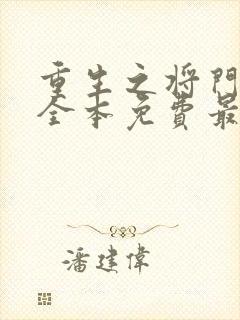 重生之将门
全本免费最
潘建伟